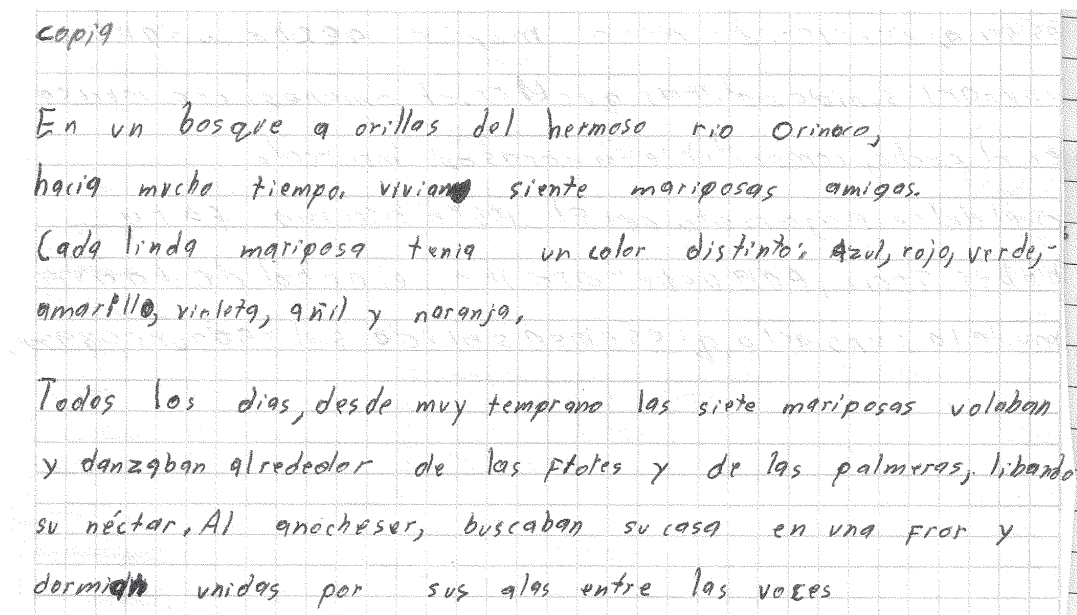 copia
En un bosque a orillas del hermoso rio Orinoco,
hacia mucho tiempo. vivian siente mariposas amigas.
Cada linda mariposa tenia un color distinto: Azul, rojo, verde,-
amarillo, violeta, añil y naranja.
Todos los dias, desde muy temprano las siete mariposas volaban
y danzaban alrededor de las Flores y de las palmeras, libando
su néctar. Al anocheser, buscaban su casa en una Fror y
dormian unidas por sus alas entre las voces